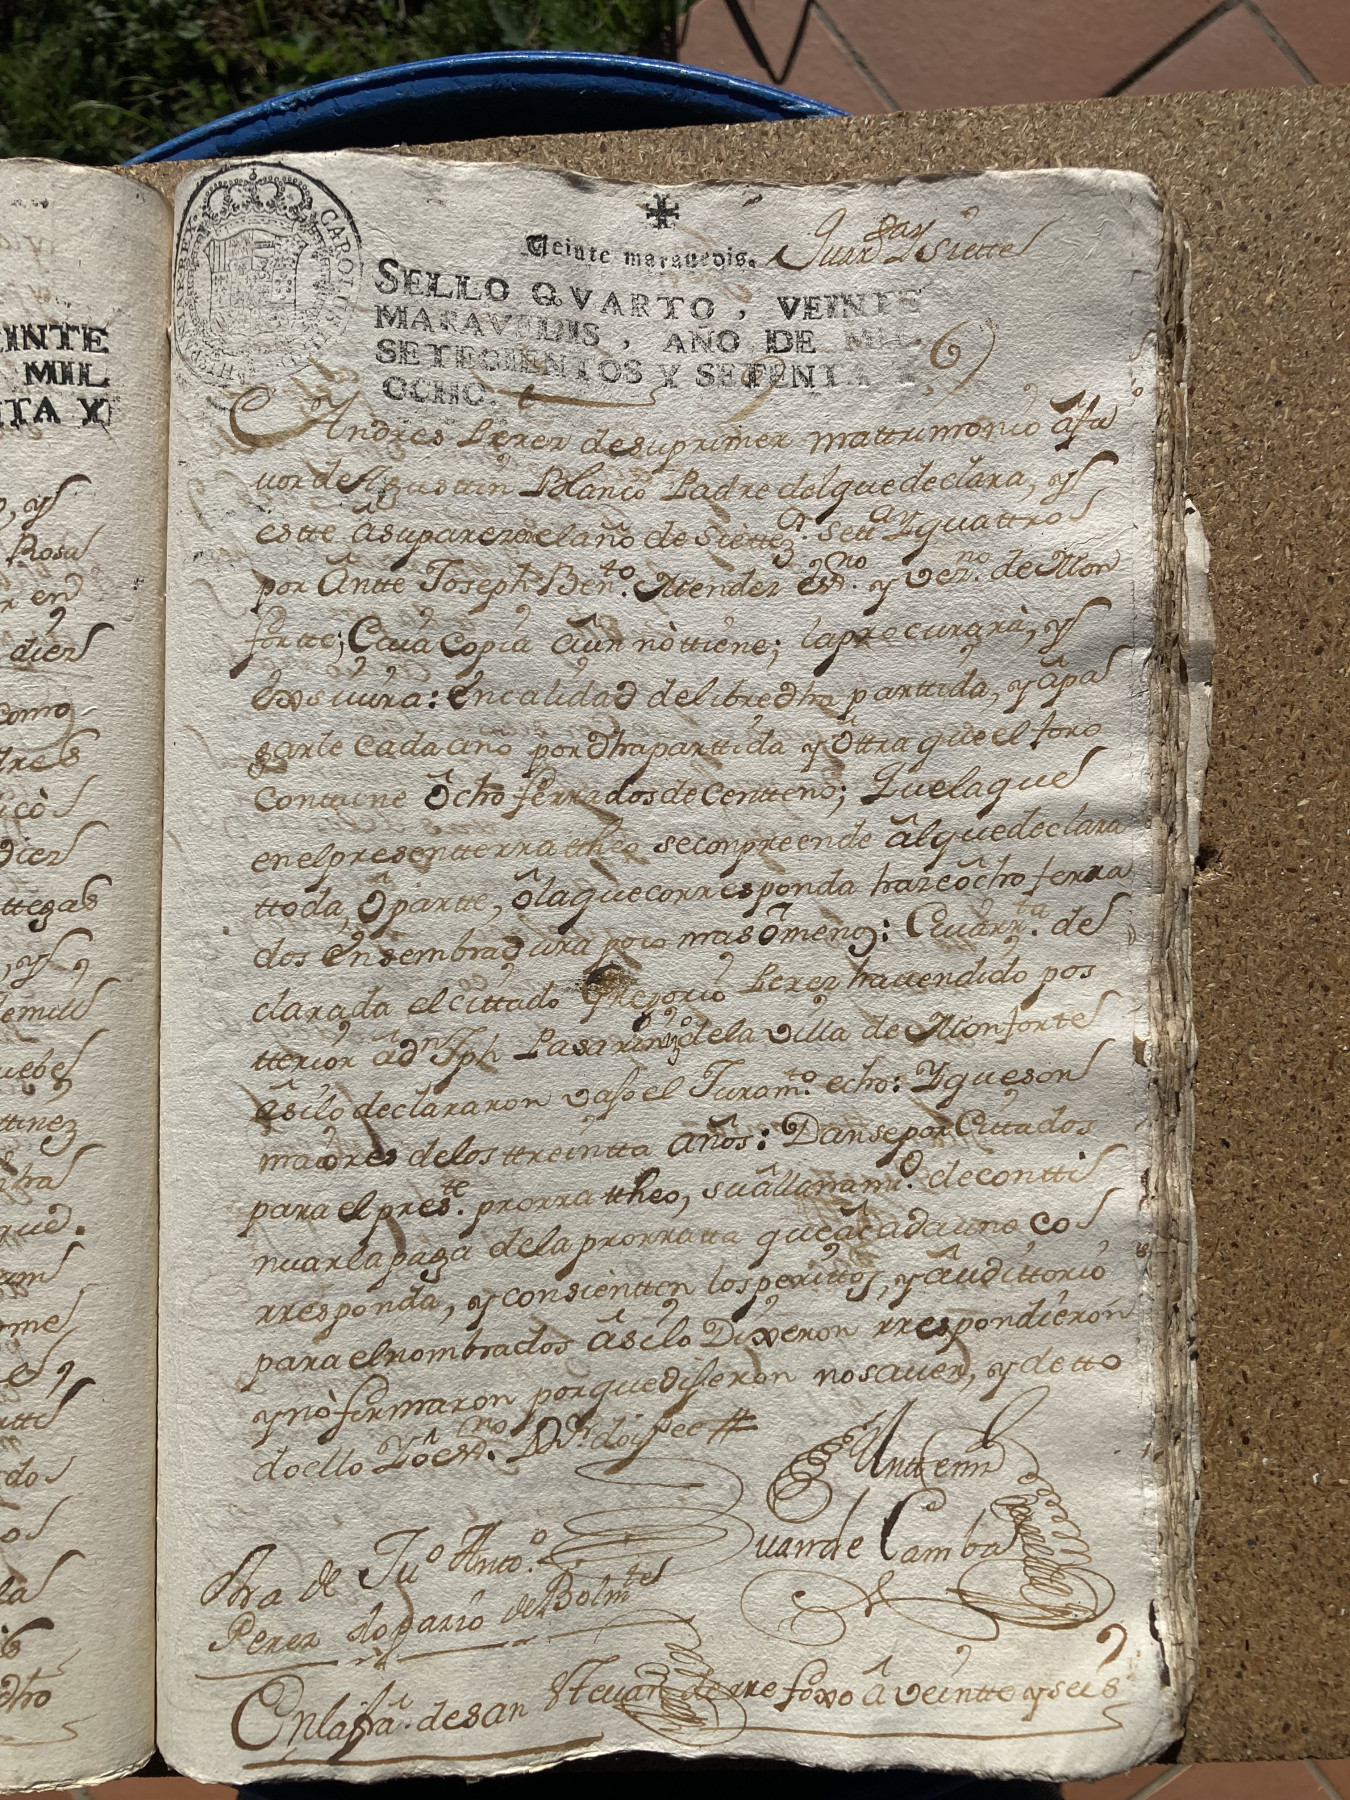 Veinte maravedis.
Quarᵗᵃ y Siette
CAROLUS
HISPANIAR REX
SELLO QVARTO, VEINTE
MARAVEDIS, AÑO DE MIL
SETECIENTOS Y SETENTA Y
OCHO.
Andres Perez de su primer mattrimonio â fa
vor de Agusttin Blanco Padre del que declara, y
estte â su parezer el año de Siette.ˢ settᵃ y quattro
por Ântte Joseph Benᵗᵒ. Mendez esⁿᵒ. y vezⁿᵒ. de Mon
fortte; Cuia Copia aûn nò ttiene; la precurarà, y
Exsivira: En calidad de libre dha parttida, y âpa
garle cada año por dha parttida y ôttra que el foro
Conttiene ôcho ferrados de centteno; Que la que
en el presentte rratheo se conpreende âl que declara
ttoda, ô partte, ô la que corresponda haze ôcho ferra
dos En sembradura poco mas ô menos: Cuarrᵗᵃ. de
clarada el cittado Gregorio Perez ha vendido pos
tterior â dⁿ Jph Pasarin vzⁿᵒ de la villa de Monforte
âsi lo declararon vajo el Juramᵗᵒ. echo: Y que son
maiores de los ttreintta años: Danse por Cittados
para el presᵗᵉ. prorrattheo, su âllanamᵗᵒ. de contti
nuar la paga de la prorratta que â cada uno co
rresponda, y consientten los perittos, y âudittorio
para el nombrados âsi lo Dixeron rrespondieron
y nò firmaron porque dijeron no saver, y de tto
do ello Yô esⁿᵒ. doi fee #
Antte mi
Juan de Camba
Dra de Juᵒ Anttᵒ.
Perez
En la fra. de san Stevan de rrefoxo â veintte y seis
INTE
MIL
TA Y
, y
Rosa
r en
diez
como
tres
icò
diez
ttegas
, y
ttinez